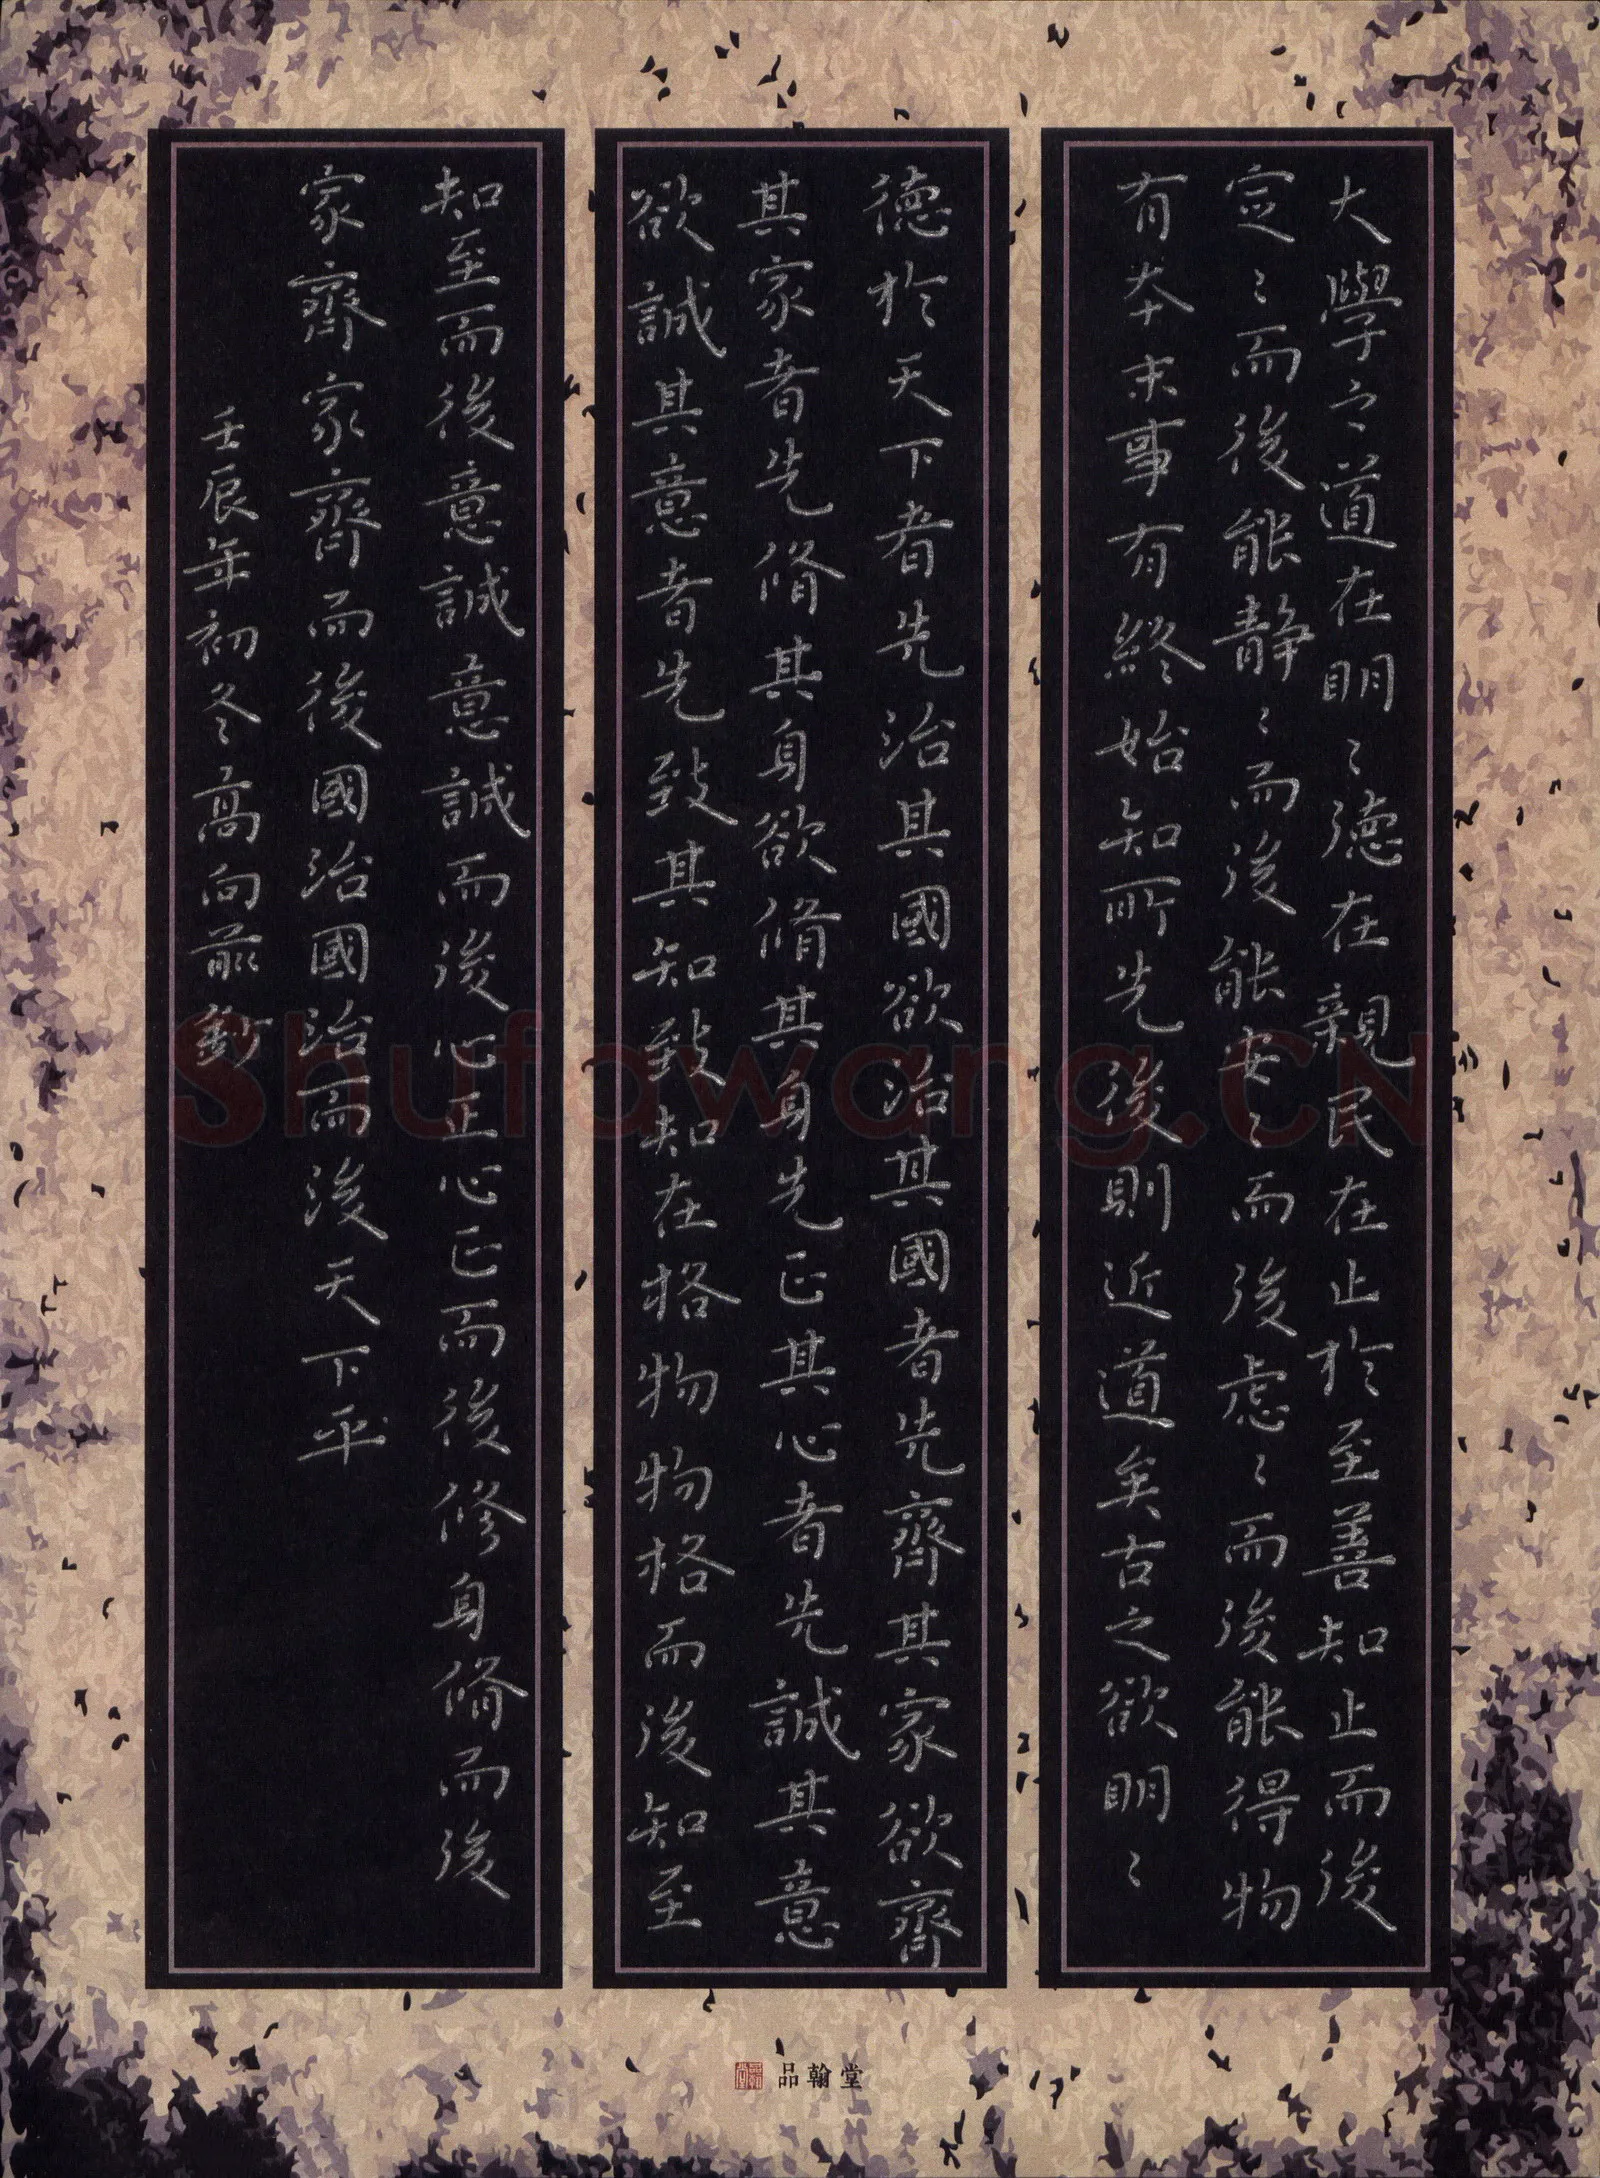 大學之道在明〻德在親民在止於至善知止而後
定〻而後能静〻而後能安〻而後虑〻而後能得物
有夲末事有終始知所先後則近道矣古之欲明〻
德於天下者先治其國欲治其國者先齊其家欲齊
其家者先脩其身欲脩其身先正其心者先誠其意
欲誠其意者先致其知致知在格物物格而後知至
知至而後意誠意誠而後心正心正而後修身脩而後
家齊家齊而後國治國治而後天下平
壬辰年初冬高向前鈔
品翰堂
Shufawang.CN